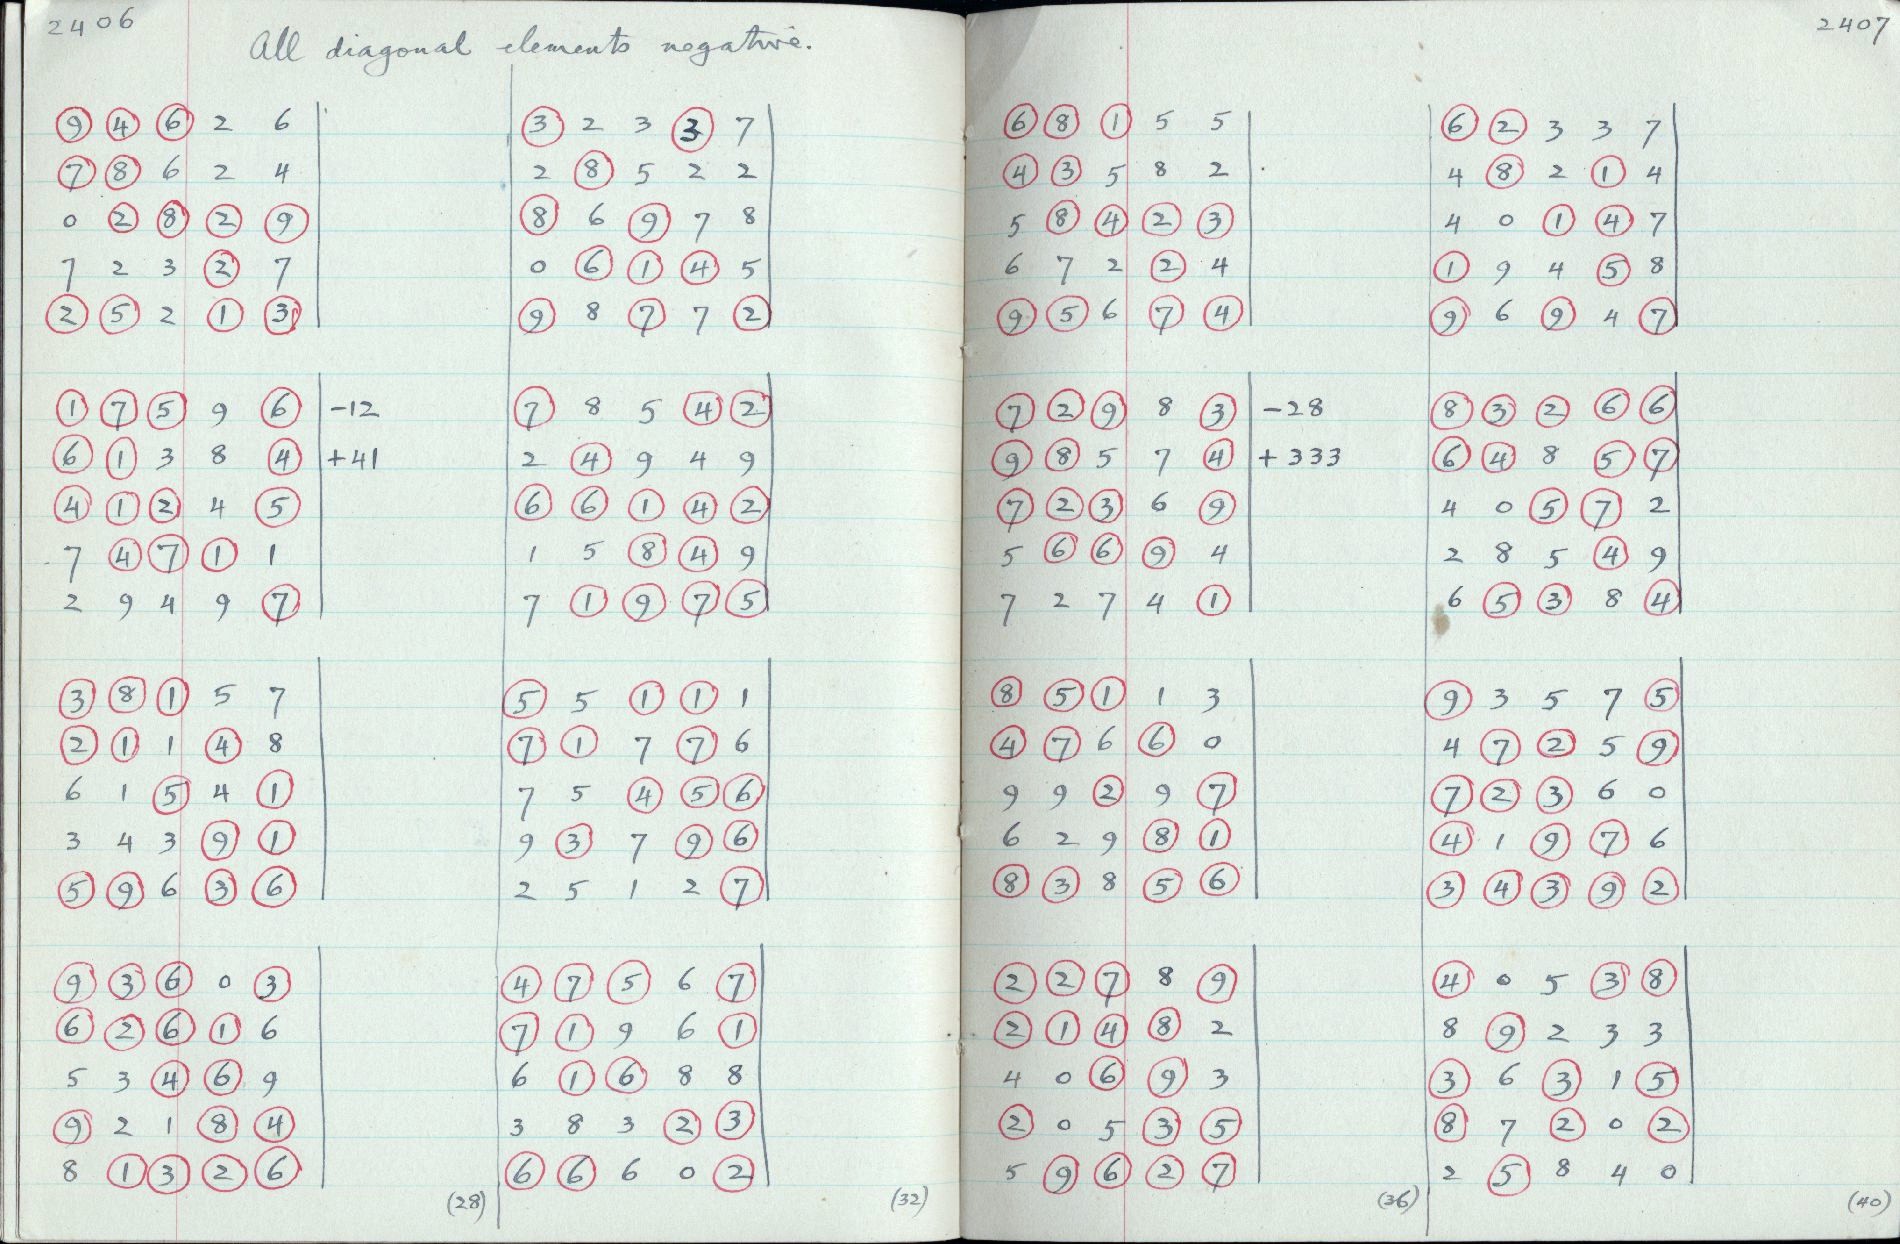 2406
All diagonal elements negative.
9 4 6 2 6
7 8 6 2 4
0 2 8 2 9
7 2 3 2 7
2 5 2 1 3
1 7 5 9 6 -12
6 1 3 8 4 +41
4 1 2 4 5
7 4 7 1 1
2 9 4 9 7
3 8 1 5 7
2 1 1 4 8
6 1 5 4 1
3 4 3 9 1
5 9 6 3 6
9 3 6 0 3
6 2 6 1 6
5 3 4 6 9
9 2 1 8 4
8 1 3 2 6
(28)
3 2 3 3 7
2 8 5 2 2
8 6 9 7 8
0 6 1 4 5
9 8 7 7 2
7 8 5 4 2
2 4 9 4 9
6 6 1 4 2
1 5 8 4 9
7 1 9 7 5
5 5 1 1 1
7 1 7 7 6
7 5 4 5 6
9 3 7 9 6
2 5 1 2 7
4 7 5 6 7
7 1 9 6 1
6 1 6 8 8
3 8 3 2 3
6 6 6 0 2
(32)
2407
6 8 1 5 5
4 3 5 8 2
5 8 4 2 3
6 7 2 2 4
9 5 6 7 4
7 2 9 8 3 -28
9 8 5 7 4 +333
7 2 3 6 9
5 6 6 9 4
7 2 7 4 1
8 5 1 1 3
4 7 6 6 0
9 9 2 9 7
6 2 9 8 1
8 3 8 5 6
2 2 7 8 9
2 1 4 8 2
4 0 6 9 3
2 0 5 3 5
5 9 6 2 7
(36)
6 2 3 3 7
4 8 2 1 4
4 0 1 4 7
1 9 4 5 8
9 6 9 4 7
8 3 2 6 6
6 4 8 5 7
4 0 5 7 2
2 8 5 4 9
6 5 3 8 4
9 3 5 7 5
4 7 2 5 9
7 2 3 6 0
4 1 9 7 6
3 4 3 9 2
4 0 5 3 8
8 9 2 3 3
3 6 3 1 5
8 7 2 0 2
2 5 8 4 0
(40)